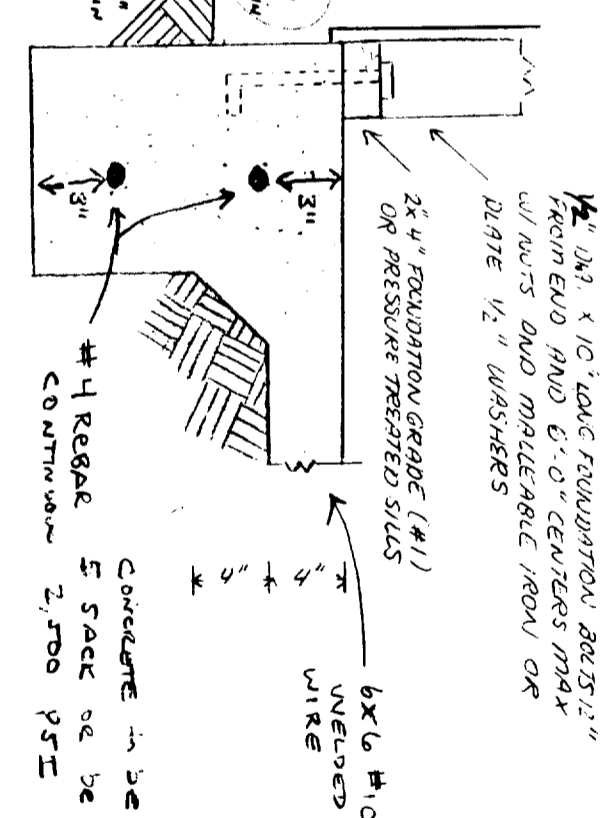 1/2" DIA. X 10" LONG FOUNDATION BOLTS 12"
FROM END AND 6'-0" CENTERS MAX
W/ NUTS AND MALLEABLE IRON OR
PLATE 1/2" WASHERS
2"x 4" FOUNDATION GRADE (#1)
OR PRESSURE TREATED SILLS
3"
3"
4"
4"
6x6 #10
WELDED
WIRE
#4 REBAR
CONTINUOUS
CONCRETE to be
5 SACK OR be
2,500 PSI